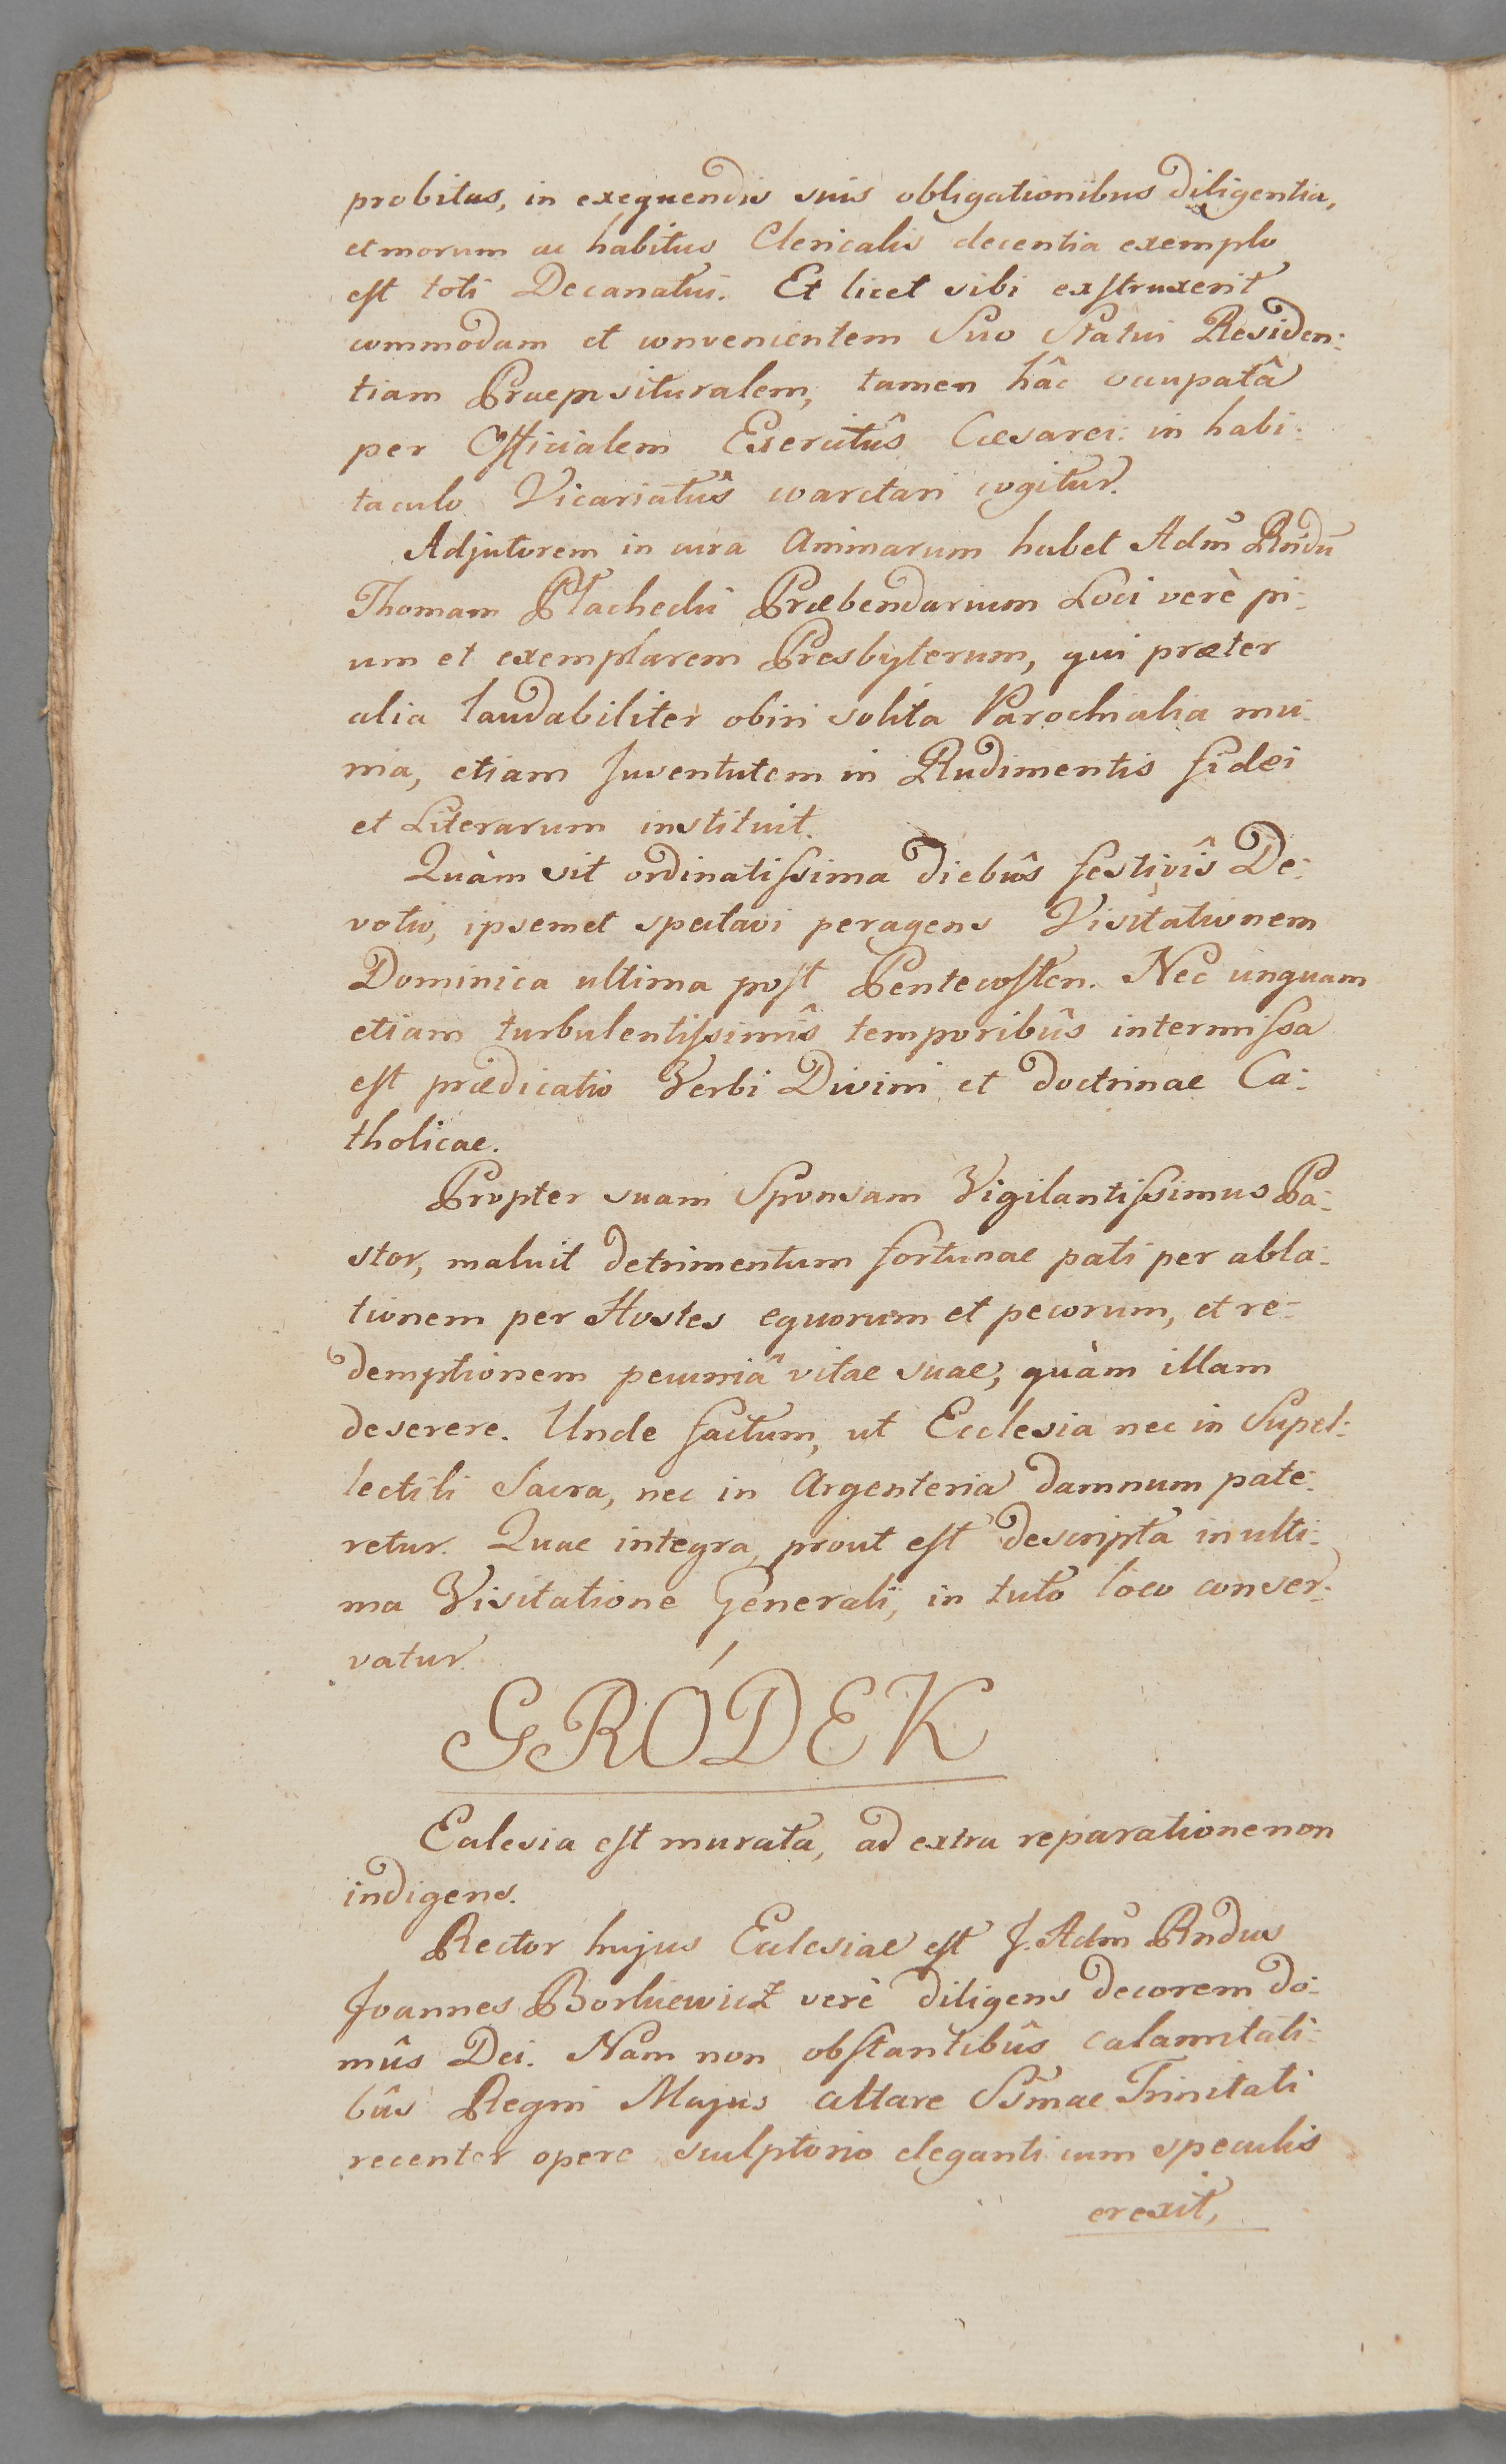 probitas, in exequendis suis obligationibus diligentia,
et morum ac habitus Clericalis decentia exemplo
est toti Decanatui. Et licet sibi exstruxerit
commodam et convenientem Suo Statui Residen:
tiam Praeposituralem, tamen hâc occupatâ
per Officialem Exercitûs Caesarei in habi:
taculo Vicariatûs coarctari cogitur.
Adjutorem in cura Animarum habet Adm Rndu
Thomam Płachecki Præbendarium Loci verè pi:
um et exemplarem Presbyterum, qui præter
alia laudabiliter obiri solita Parochialia mu:
nia, etiam Juventutem in Rudimentis fidei
et Literarum instituit.
Quàm sit ordinatissima diebûs festivîs De:
votio, ipsemet spectavi peragens Visitationem
Dominica ultima post Pentecosten. Nec unquam
etiam turbulentissimîs temporibûs intermissa
est prædicatio Verbi Divini et doctrinae Ca:
tholicae.
Propter suam Sponsam Vigilantissimus Pa:
stor, maluit detrimentum fortunae pati per abla:
tionem per Hostes equorum et pecorum, et re:
demptionem pecuniâ vitae suae, quàm illam
deserere. Unde factum, ut Ecclesia nec in Supel:
lectili Sacra, nec in Argenteria damnum pate:
retur. Quae integra, prout est descripta in ulti:
ma Visitatione Generali, in tuto loco conser:
vatur.
GRÓDEK
Ecclesia est murata, ad extra reparatione non
indigens.
Rector hujus Ecclesiae est J. Adm Rndus
Joannes verè diligens decorem do:
mûs Dei. Nam non obstantibûs calamitati:
bûs Regni Majus altare Ssmae Trinitati
recenter opere sculptorio eleganti cum speculis
erexit,